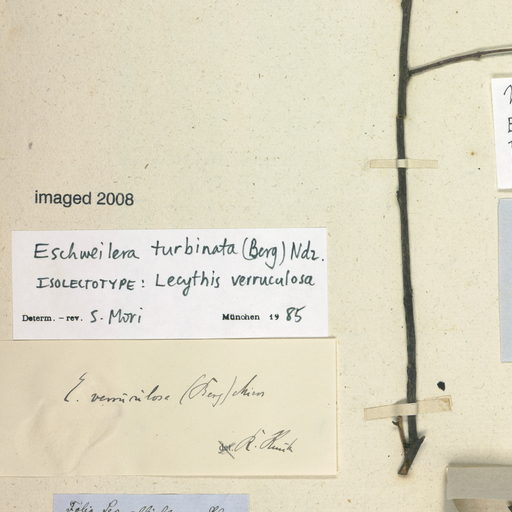 imaged 2008
Eschweilera turbinata (Berg) Ndz.
ISOLECTOTYPE: Lecythis verruculosa
Determ. - rev. S. Mori München 1985
E. verruculosa (Berg)
R.
Folia